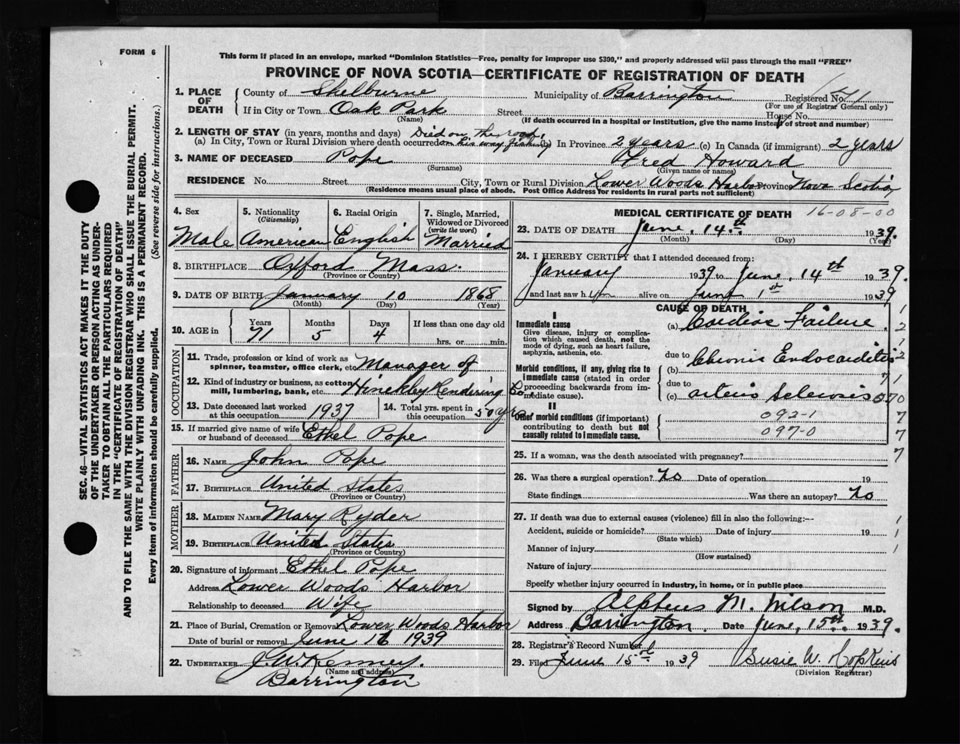 FORM 6
This form if placed in an envelope, marked "Dominion Statistics—Free, penalty for improper use $300," and properly addressed will pass through the mail "FREE"
PROVINCE OF NOVA SCOTIA—CERTIFICATE OF REGISTRATION OF DEATH
1. PLACE OF DEATH
County of Shelburne Municipality of Barrington Registered No.
(For use of Registrar General only)
If in City or Town Oak Park Street House No.
(Name) (If death occurred in a hospital or institution, give the name instead of street and number)
2. LENGTH OF STAY (in years, months and days) Died on the road
(a) In City, Town or Rural Division where death occurred on his way fishing (b) In Province 2 years (c) In Canada (if immigrant) 2 years
3. NAME OF DECEASED Pope Fred Howard
(Surname) (Given name or names)
RESIDENCE No. Street City, Town or Rural Division Lower Woods Harbor Province Nova Scotia
(Residence means usual place of abode. Post Office Address for residents in rural parts not sufficient)
4. Sex
Male
5. Nationality
(Citizenship)
American
6. Racial Origin
English
7. Single, Married, Widowed or Divorced
(write the word)
Married
8. BIRTHPLACE Oxford Mass.
(Province or Country)
9. DATE OF BIRTH January 10 1868
(Month) (Day) (Year)
10. AGE in
Years Months Days If less than one day old
71 5 4 hrs. or min.
OCCUPATION
11. Trade, profession or kind of work as spinner, teamster, office clerk, etc. Manager of
12. Kind of industry or business, as cotton mill, lumbering, bank, etc. Hinckley Rendering Co
13. Date deceased last worked at this occupation 1937
14. Total yrs. spent in this occupation 50 yrs
15. If married give name of wife or husband of deceased Ethel Pope
FATHER
16. NAME John Pope
17. BIRTHPLACE United States
(Province or Country)
MOTHER
18. MAIDEN NAME Mary Ryder
19. BIRTHPLACE United States
(Province or Country)
20. Signature of informant Ethel Pope
Address Lower Woods Harbor
Relationship to deceased Wife
21. Place of Burial, Cremation or Removal Lower Woods Harbor
Date of burial or removal June 16 1939
22. UNDERTAKER J. W. Kenney.
(Name and address)
Barrington
MEDICAL CERTIFICATE OF DEATH 16-08-00
23. DATE OF DEATH June, 14th 1939.
(Month) (Day) (Year)
24. I HEREBY CERTIFY that I attended deceased from:
January 1939 to June, 14th 1939.
and last saw him alive on June 1st 1939
CAUSE OF DEATH
I
Immediate cause
Give disease, injury or complication which caused death, not the mode of dying, such as heart failure, asphyxia, asthenia, etc.
(a) Cardiac Failure
due to
Morbid conditions, if any, giving rise to immediate cause (stated in order proceeding backwards from immediate cause).
(b) Chronic Endocarditis
due to
(c) arterio Sclerosis
II
Other morbid conditions (if important) contributing to death but not causally related to immediate cause.
092-1
097-0
25. If a woman, was the death associated with pregnancy?
26. Was there a surgical operation? No Date of operation 19
State findings Was there an autopsy? No
27. If death was due to external causes (violence) fill in also the following:—
Accident, suicide or homicide? Date of injury 19
(State which)
Manner of injury
(How sustained)
Nature of injury
Specify whether injury occurred in industry, in home, or in public place
Signed by Alpheus M. Wilson M.D.
Address Barrington. Date June, 15th 1939.
28. Registrar's Record Number
29. Filed June 15th 1939 Susie W. Hopkins
(Division Registrar)
SEC. 46—VITAL STATISTICS ACT MAKES IT THE DUTY
OF THE UNDERTAKER OR PERSON ACTING AS UNDER-
TAKER TO OBTAIN ALL THE PARTICULARS REQUIRED
IN THE "CERTIFICATE OF REGISTRATION OF DEATH"
AND TO FILE THE SAME WITH THE DIVISION REGISTRAR WHO SHALL ISSUE THE BURIAL PERMIT.
WRITE PLAINLY WITH UNFADING INK. THIS IS A PERMANENT RECORD.
Every item of information should be carefully supplied. (See reverse side for instructions.)